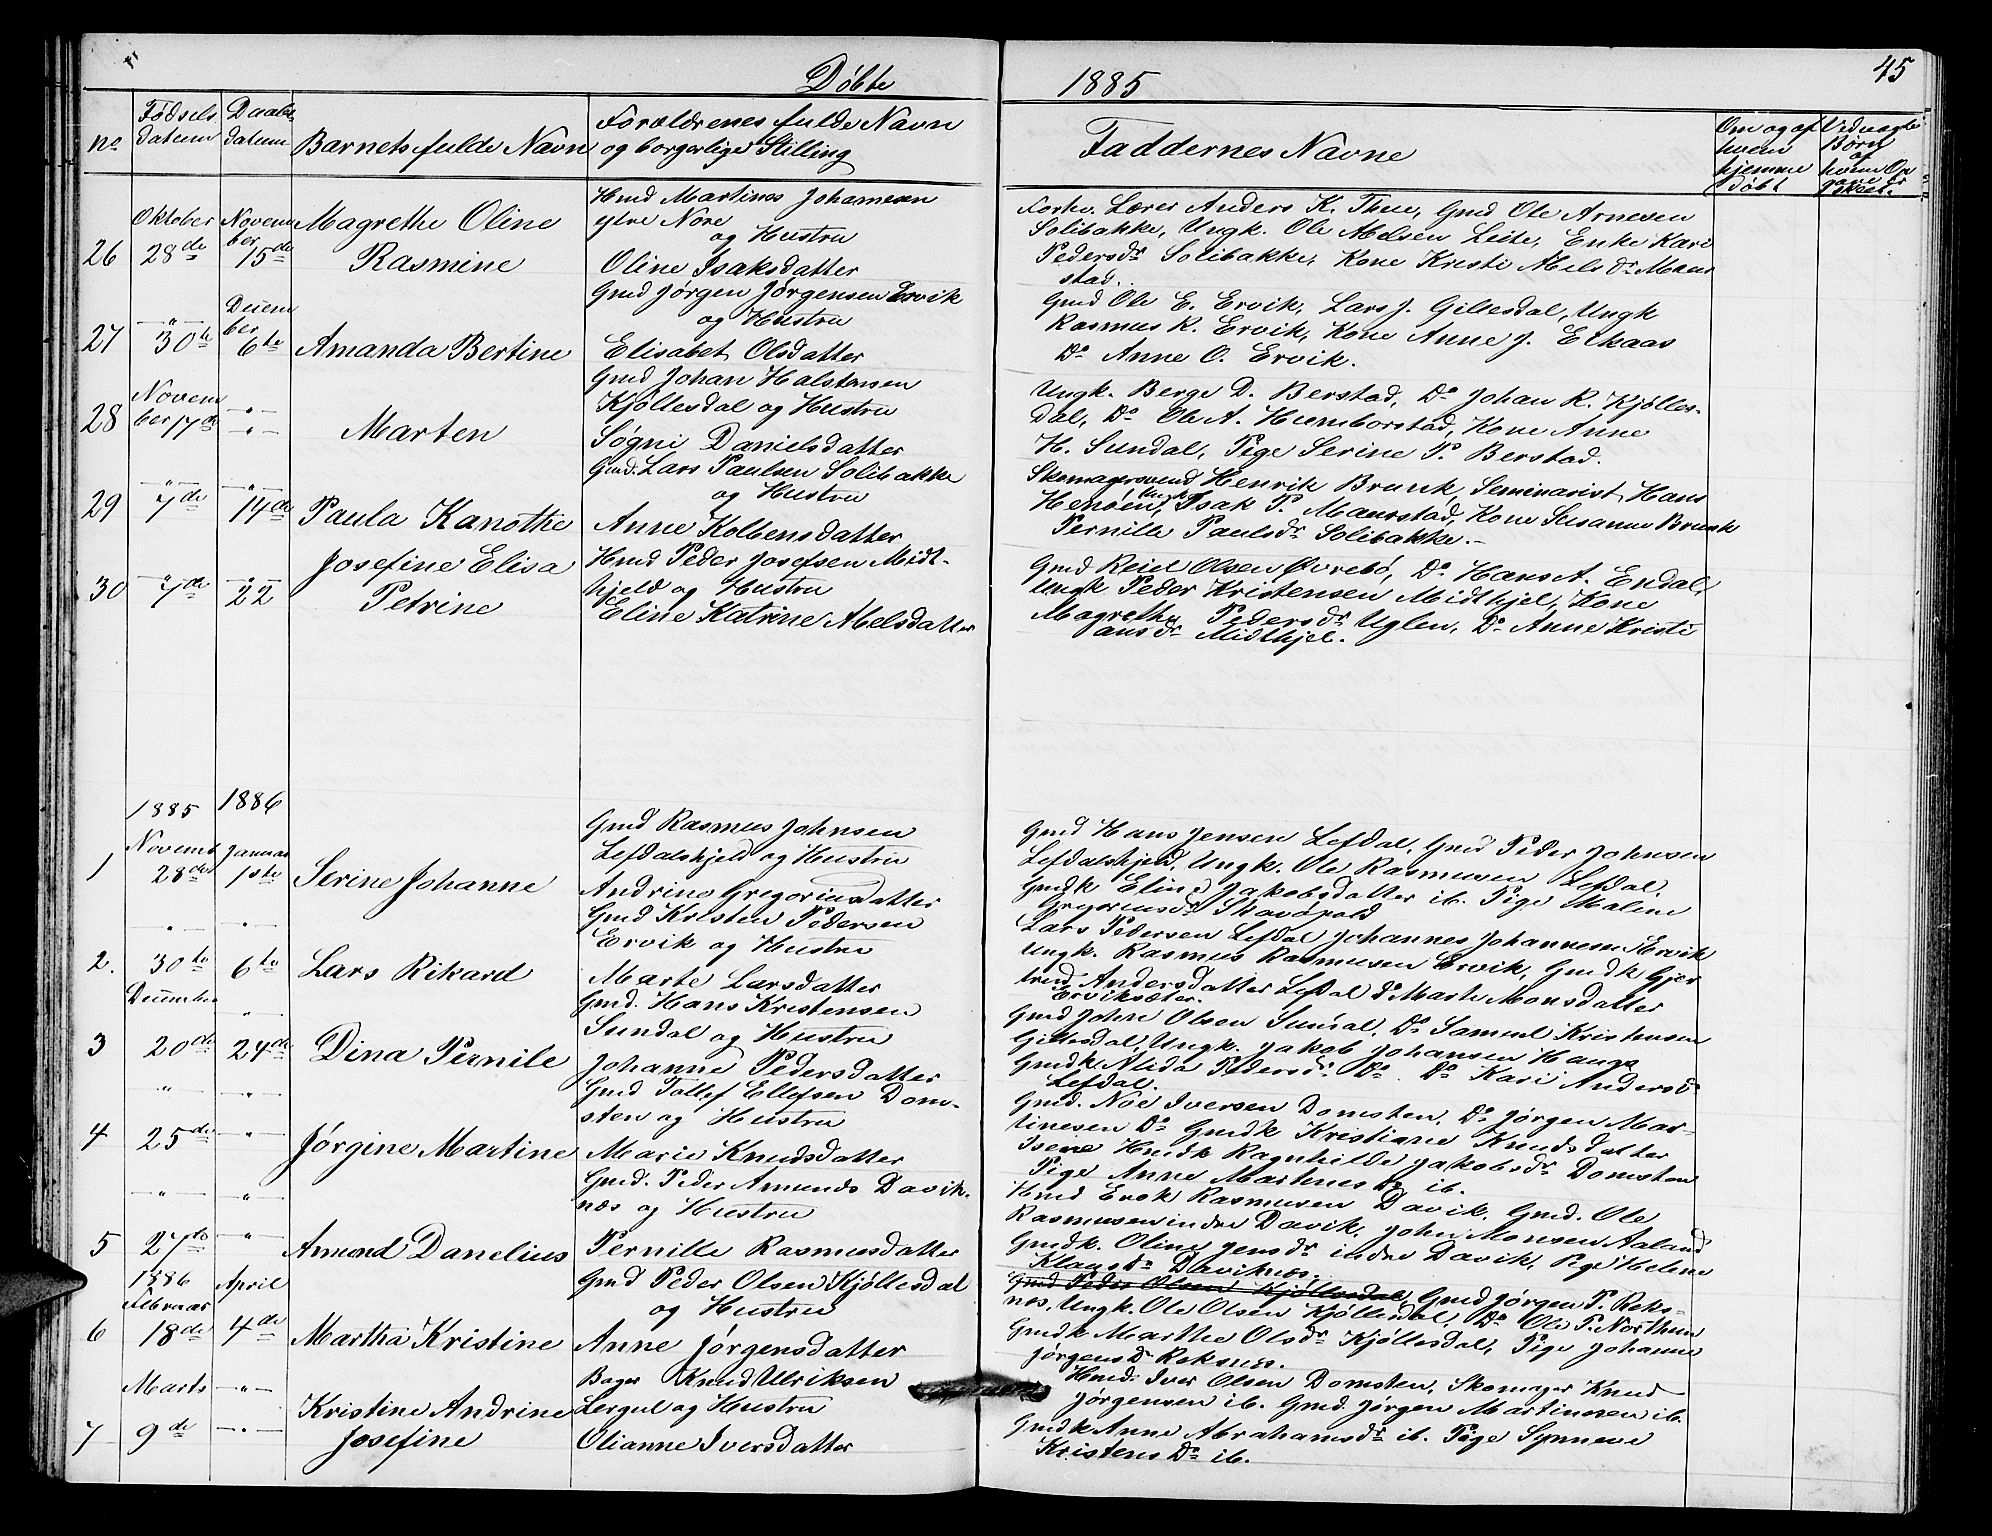 Døbte 1885 45
No
Fødsels datum
Daabs datum
Barnets fulde Navn
Forældrenes fulde Navn og borgerlige Stilling
Faddernes Navne
Om og af hvem hjemme døbt
26 Oktober 28de November 15de
Magrethe Oline
Rasmine
Hmd Martines Johannesen
ytre Nore
og Hustru
Oline Isaksdatter
Forhv. Lærer Anders K. Thue, Gmd Ole Arnesen
Solibakke, Ungk. Ole Abelsen Leite, Enke Kari
Pedersdr Solibakke, Kone Kristi Nielsdr Maur
stad.
27 —"— 30te December 6te
Amanda Bertine
Gmd Jørgen Jørgensen Ervik
og Hustru
Elisabet Olsdatter
Gmd Ole E. Ervik, Lars J. Gillesdal, Ungk
Rasmus K. Ervik, Kone Anne J. Eikaas
Do Anne O. Ervik.
28 November 17de —"—
—"—
Marten
Gmd Johan Halstensen
Kjøllesdal og Hustru
Søgni Danielsdatter
Ungk. Berge D. Berstad, Do Johan R. Kjølles-
dal, Do Ole A. Humborstad, Kone Anne
H. Sundal, Pige Serine P. Berstad.
29 —"— 7de —"— 14de
Paula Kanothe
Gmd. Lars Paulsen Solibakke
og Hustru
Anne Kolbensdatter
Skomagersvend Henrik Brunk, Seminarist Hans
Henøen, Ungk Isak P. Maurstad, Kone Susanne Brunk
Pernille Paulsdr Solibakke.—
30 —"— 7de —"— 22
Josefine Elisa
Petrine
Hmd Peder Josefsen Midt-
hjeld og Hustru
Eline Katrine Abelsdatter
Gmd Reiel Olsen Øvrebø, Do Hans A. Endal,
Ungk Peder Kristensen Midthjel, Kone
Magrethe Pedersdr Uglen, Do Anne Kristi
ansdr Midthjel.
1885 1886
1 Novemb 28de Januar 1ste
Serine Johanne
Gmd Rasmus Johnsen
Lefdalshjeld og Hustru
Andrine Gregoriusdatter
Gmd Hans Jensen Lefdal, Gmd Peder Johnsen
Lefdalshjeld, Ungk. Ole Rasmusen Lefdal,
Gmdk Eline Jakobsdatter ib. Pige Malene
Gregoriusdr
2. —"— 30te —"— 6te
Lars Rikard
Gmd Kristen Pedersen
Ervik og Hustru
Marte Larsdatter
Lars Pedersen Lefdal Johannes Johannesen Ervik
Ungk. Rasmus Rasmusen Ervik, Gmdk Gjer
trud Andersdatter Lefdal do Marte Monsdatter
Erviksæter.
3 December 20de —"— 24de
Dina Pernile
Gmd. Hans Kristensen
Sundal og Hustru
Johanne Pedersdatter
Gmd John Olsen Sundal, Do Samuel Kristensen
Gillesdal, Ungk. Jakob Johansen Hauge
Gmdk Alida Pedersdr Do. Do Kari Andersd
Lefdal.
4 —"— 25de —"—
—"—
Jørgine Martine
Gmd Tollef Ellefsen Dom-
sten og Hustru
Marie Knudsdatter
Gmd. Noe Iversen Domsten, Do Jørgen Mar-
tinesen Do Gmdk Kristiane Knudsdatter
Hmdk Ragnhilde Jakobsdr Domsten
Pige Anne Martinesdr ib.
5 —"— 27de —"—
—"—
Amund Danelius
Gmd. Peder Amunds Davik-
næs og Hustru
Pernille Rasmusdatter
Hmd Erok Rasmusen Davik, Gmd. Ole
Rasmusen indre Davik, John Monsen Aaland
Gmdk. Oline Jensdr indre Davik, Pige Helene
Klausdr Daviknæs.
6 1886 Februar 18de April 4de
Martha Kristine
Gmd Peder Olsen Kjøllesdal
og Hustru
Anne Jørgensdatter
Gmd Peder Olsen Kjøllesdal, Gmd Jørgen P. Reks-
næs, Ungk. Ole Olsen Kjøllesdal, Do Ole P. Northun
Gmdk Marthe Olsdr Kjøllesdal, Pige Johanne
Jørgensdr Reksnæs.
7 Marts 9de —"—
—"—
Kristine Andrine
Josefine
Bager Knud Ulriksen
Lergul og Hustru
Olianne Iversdatter
Hmd. Iver Olsen Domsten, Skomager Knud
Jørgensen ib. Gmd. Jørgen Martinusen ib.
Gmdk Anne Abrahamsdr ib. Pige Synneve
Kristens Dr ib.